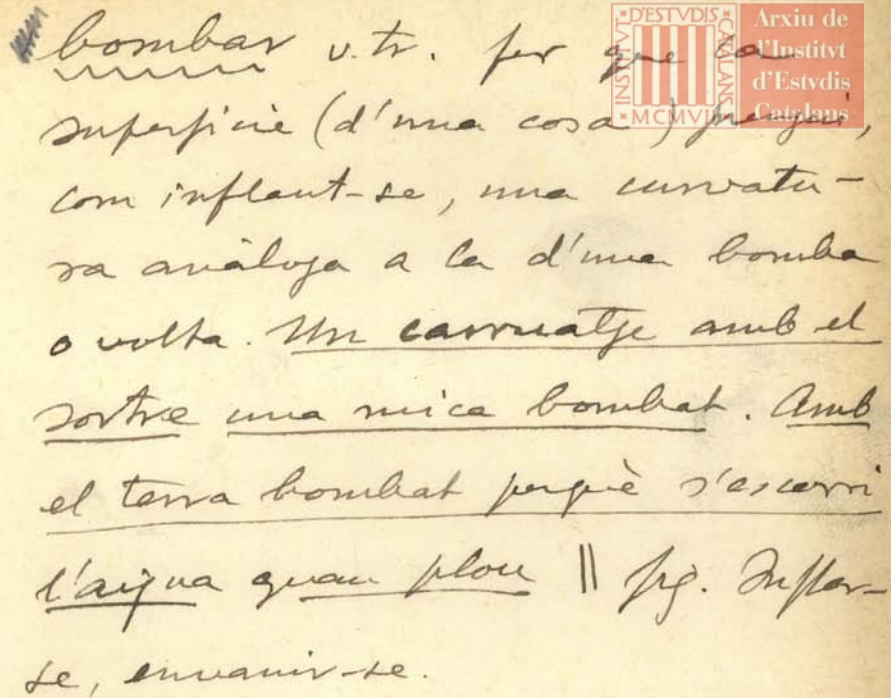 bombar v. tr. fer que la
superfície (d'una cosa) prengui,
com inflant-se, una curvatu-
ra anàloga a la d'una bomba
o volta. Un carruatge amb el
sostre una mica bombat. Amb
el terra bombat perquè s'escorri
l'aigua quan plou || fig. Inflar-
se, envanir-se.
INSTITVT D'ESTVDIS CATALANS
MCMVII
Arxiu de
l'Institvt
d'Estvdis
Catalans